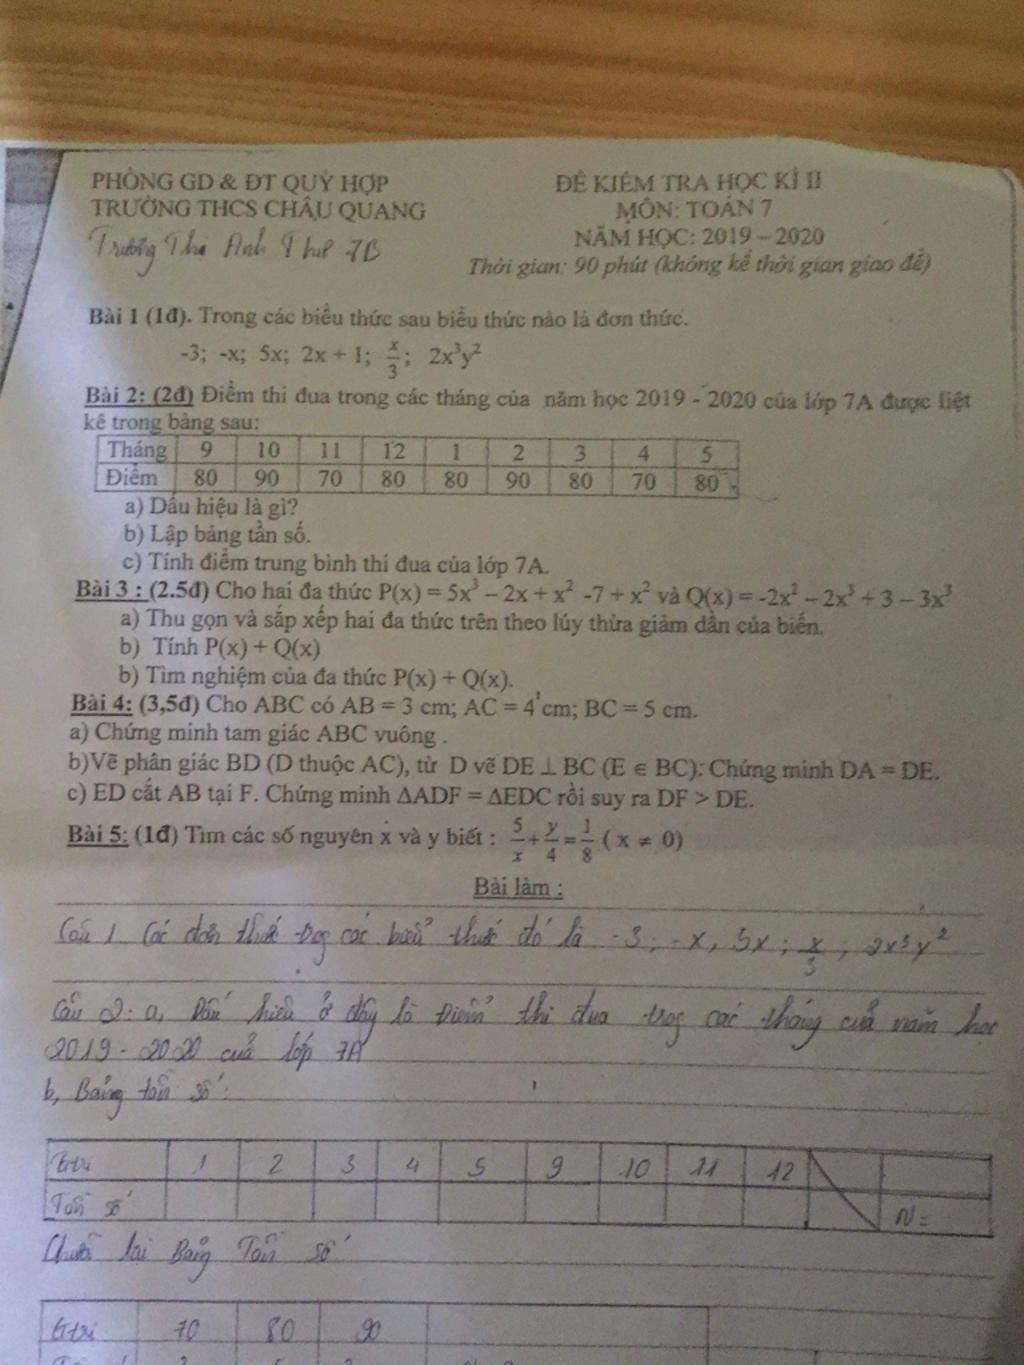 PHÒNG GD & ĐT QUỲ HỢP
TRƯỜNG THCS CHÂU QUANG
Trương Thị Anh Thư 7B
ĐỀ KIỂM TRA HỌC KÌ II
MÔN: TOÁN 7
NĂM HỌC: 2019 – 2020
Thời gian: 90 phút (không kể thời gian giao đề)
Bài 1 (1đ). Trong các biểu thức sau biểu thức nào là đơn thức.
-3; -x; 5x; 2x + 1; x/3; 2x³y²
Bài 2: (2đ) Điểm thi đua trong các tháng của năm học 2019 - 2020 của lớp 7A được liệt
kê trong bảng sau:
Tháng 9 10 11 12 1 2 3 4 5
Điểm 80 90 70 80 80 90 80 70 80
a) Dấu hiệu là gì?
b) Lập bảng tần số.
c) Tính điểm trung bình thi đua của lớp 7A.
Bài 3 : (2.5đ) Cho hai đa thức P(x) = 5x³ – 2x + x² -7 + x² và Q(x) = -2x² – 2x³ + 3 – 3x³
a) Thu gọn và sắp xếp hai đa thức trên theo lúy thừa giảm dần của biến.
b) Tính P(x) + Q(x)
b) Tìm nghiệm của đa thức P(x) + Q(x).
Bài 4: (3,5đ) Cho ABC có AB = 3 cm; AC = 4 cm; BC = 5 cm.
a) Chứng minh tam giác ABC vuông .
b)Vẽ phân giác BD (D thuộc AC), từ D vẽ DE ⊥ BC (E ∈ BC). Chứng minh DA = DE.
c) ED cắt AB tại F. Chứng minh ΔADF = ΔEDC rồi suy ra DF > DE.
Bài 5: (1đ) Tìm các số nguyên x và y biết : 5/x + y/4 = 1/8 ( x ≠ 0)
Bài làm :
Câu 1 Các đơn thức trog các biểu thức đó là -3; -x, 5x; x/3; 2x³y²
Câu 2: a, Dấu hiệu ở đây là Điểm thi đua trog các tháng của năm học
2019 - 2020 của lớp 7A
b, Bảng tần số:
G.trị 1 2 3 4 5 9 10 11 12
Tần số N =
lại Bảng Tần số
G.trị 70 80 90